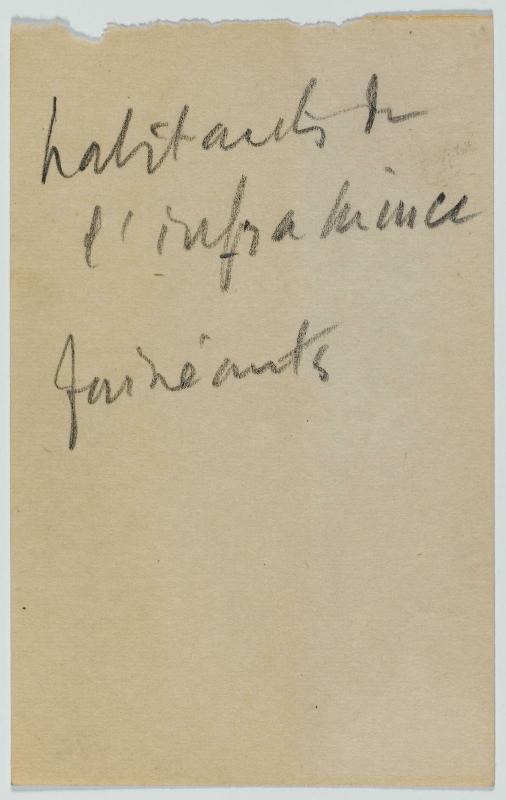 habitants de
l'infra mince
fainéants